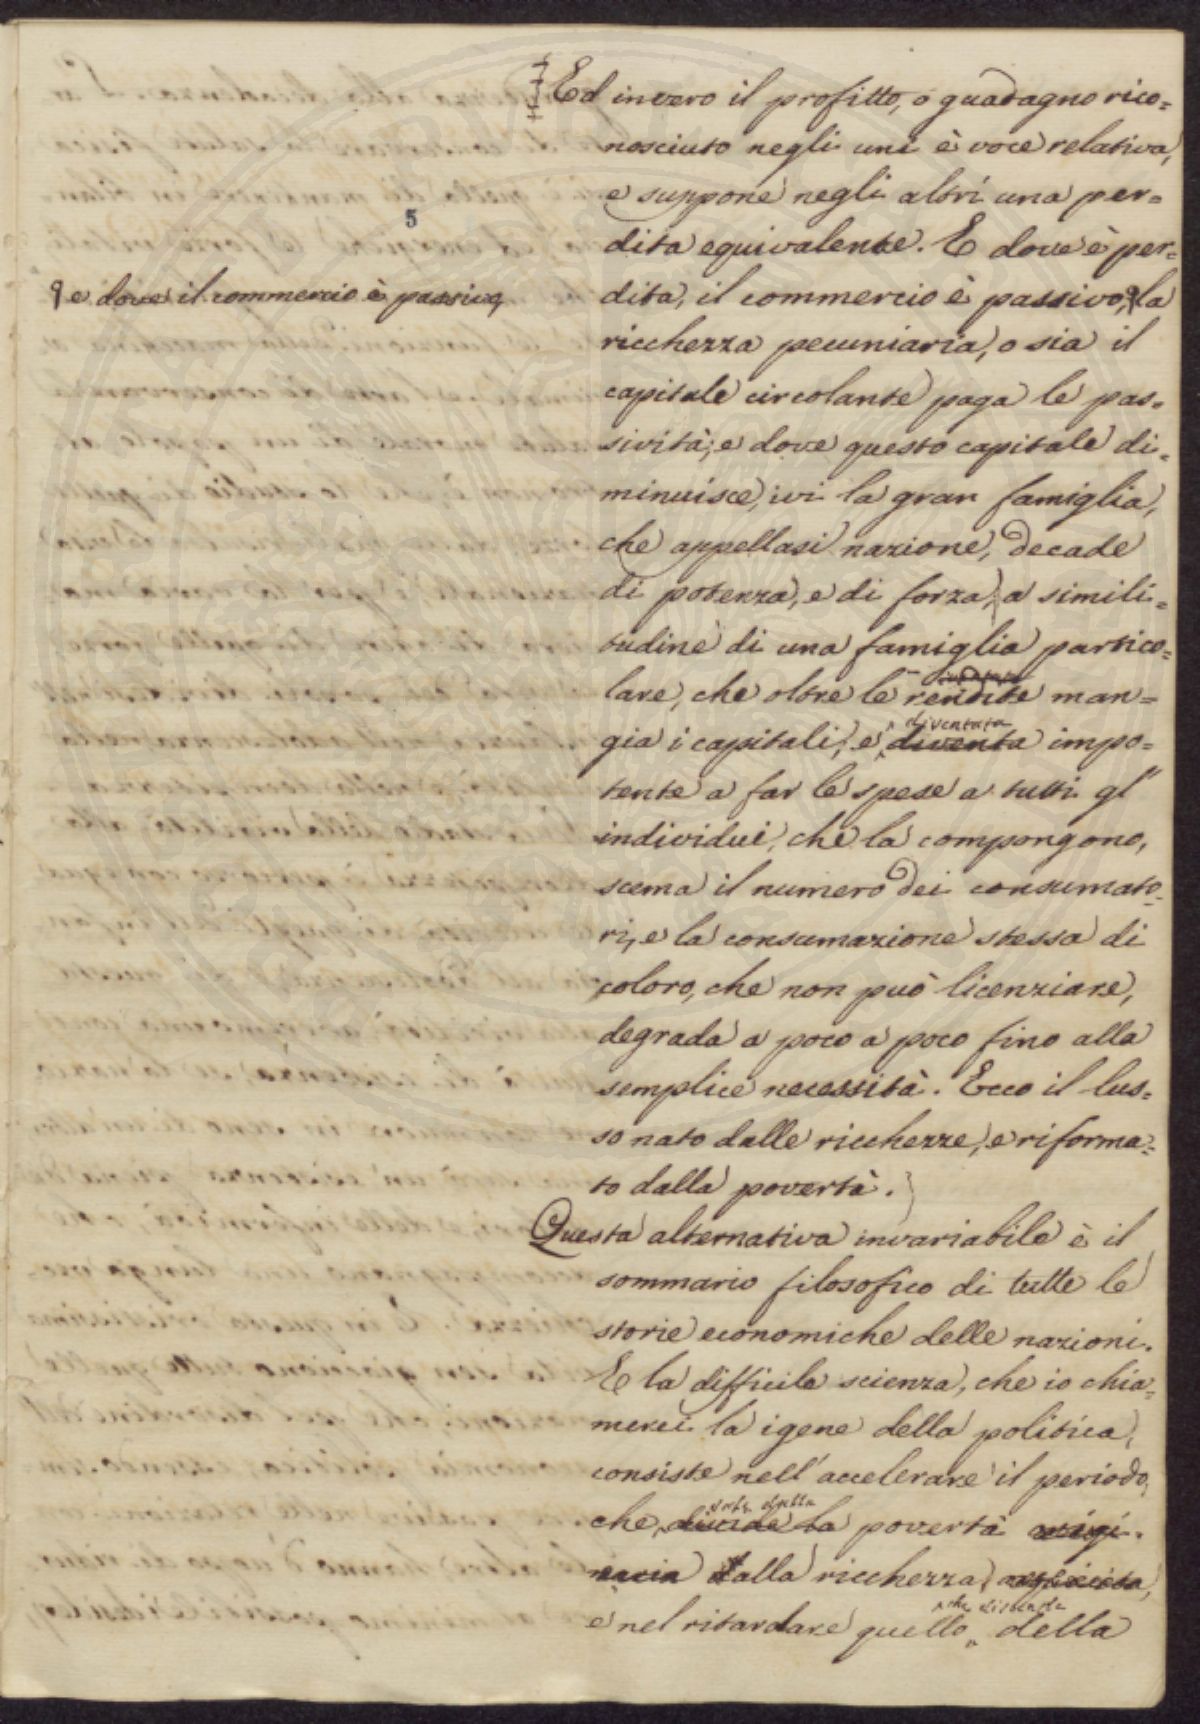 Ed invero il profitto, o guadagno rico=
nosciuto negli uni è voce relativa,
e suppone negli altri una per=
5
dita equivalente. E dove è per=
e dove il commercio è passivo,
dita, il commercio è passivo, la
ricchezza pecuniaria, o sia il
capitale circolante paga le pas=
sività; e dove questo capitale di=
minuisce, ivi la gran famiglia,
che appellasi nazione, decade
di potenza, e di forza, a simili=
tudine di una famiglia partico=
lare, che oltre le rendite man=
diventata
gia i capitali, e diventa impo=
tente a far le spese a tutti gl'
individui, che la compongono,
scema il numero dei consumato=
ri, e la consumazione stessa di
coloro, che non può licenziare,
degrada a poco a poco fino alla
semplice necessità. Ecco il lus=
so nato dalle ricchezze, e riforma=
to dalla povertà.
Questa alternativa invariabile è il
sommario filosofico di tutte le
storie economiche delle nazioni.
E la difficile scienza, che io chia=
merei la igene della politica,
consiste nell'accelerare il periodo,
dalla
che divide la povertà origi=
naria dalla ricchezza
che
e nel ritardare quello della